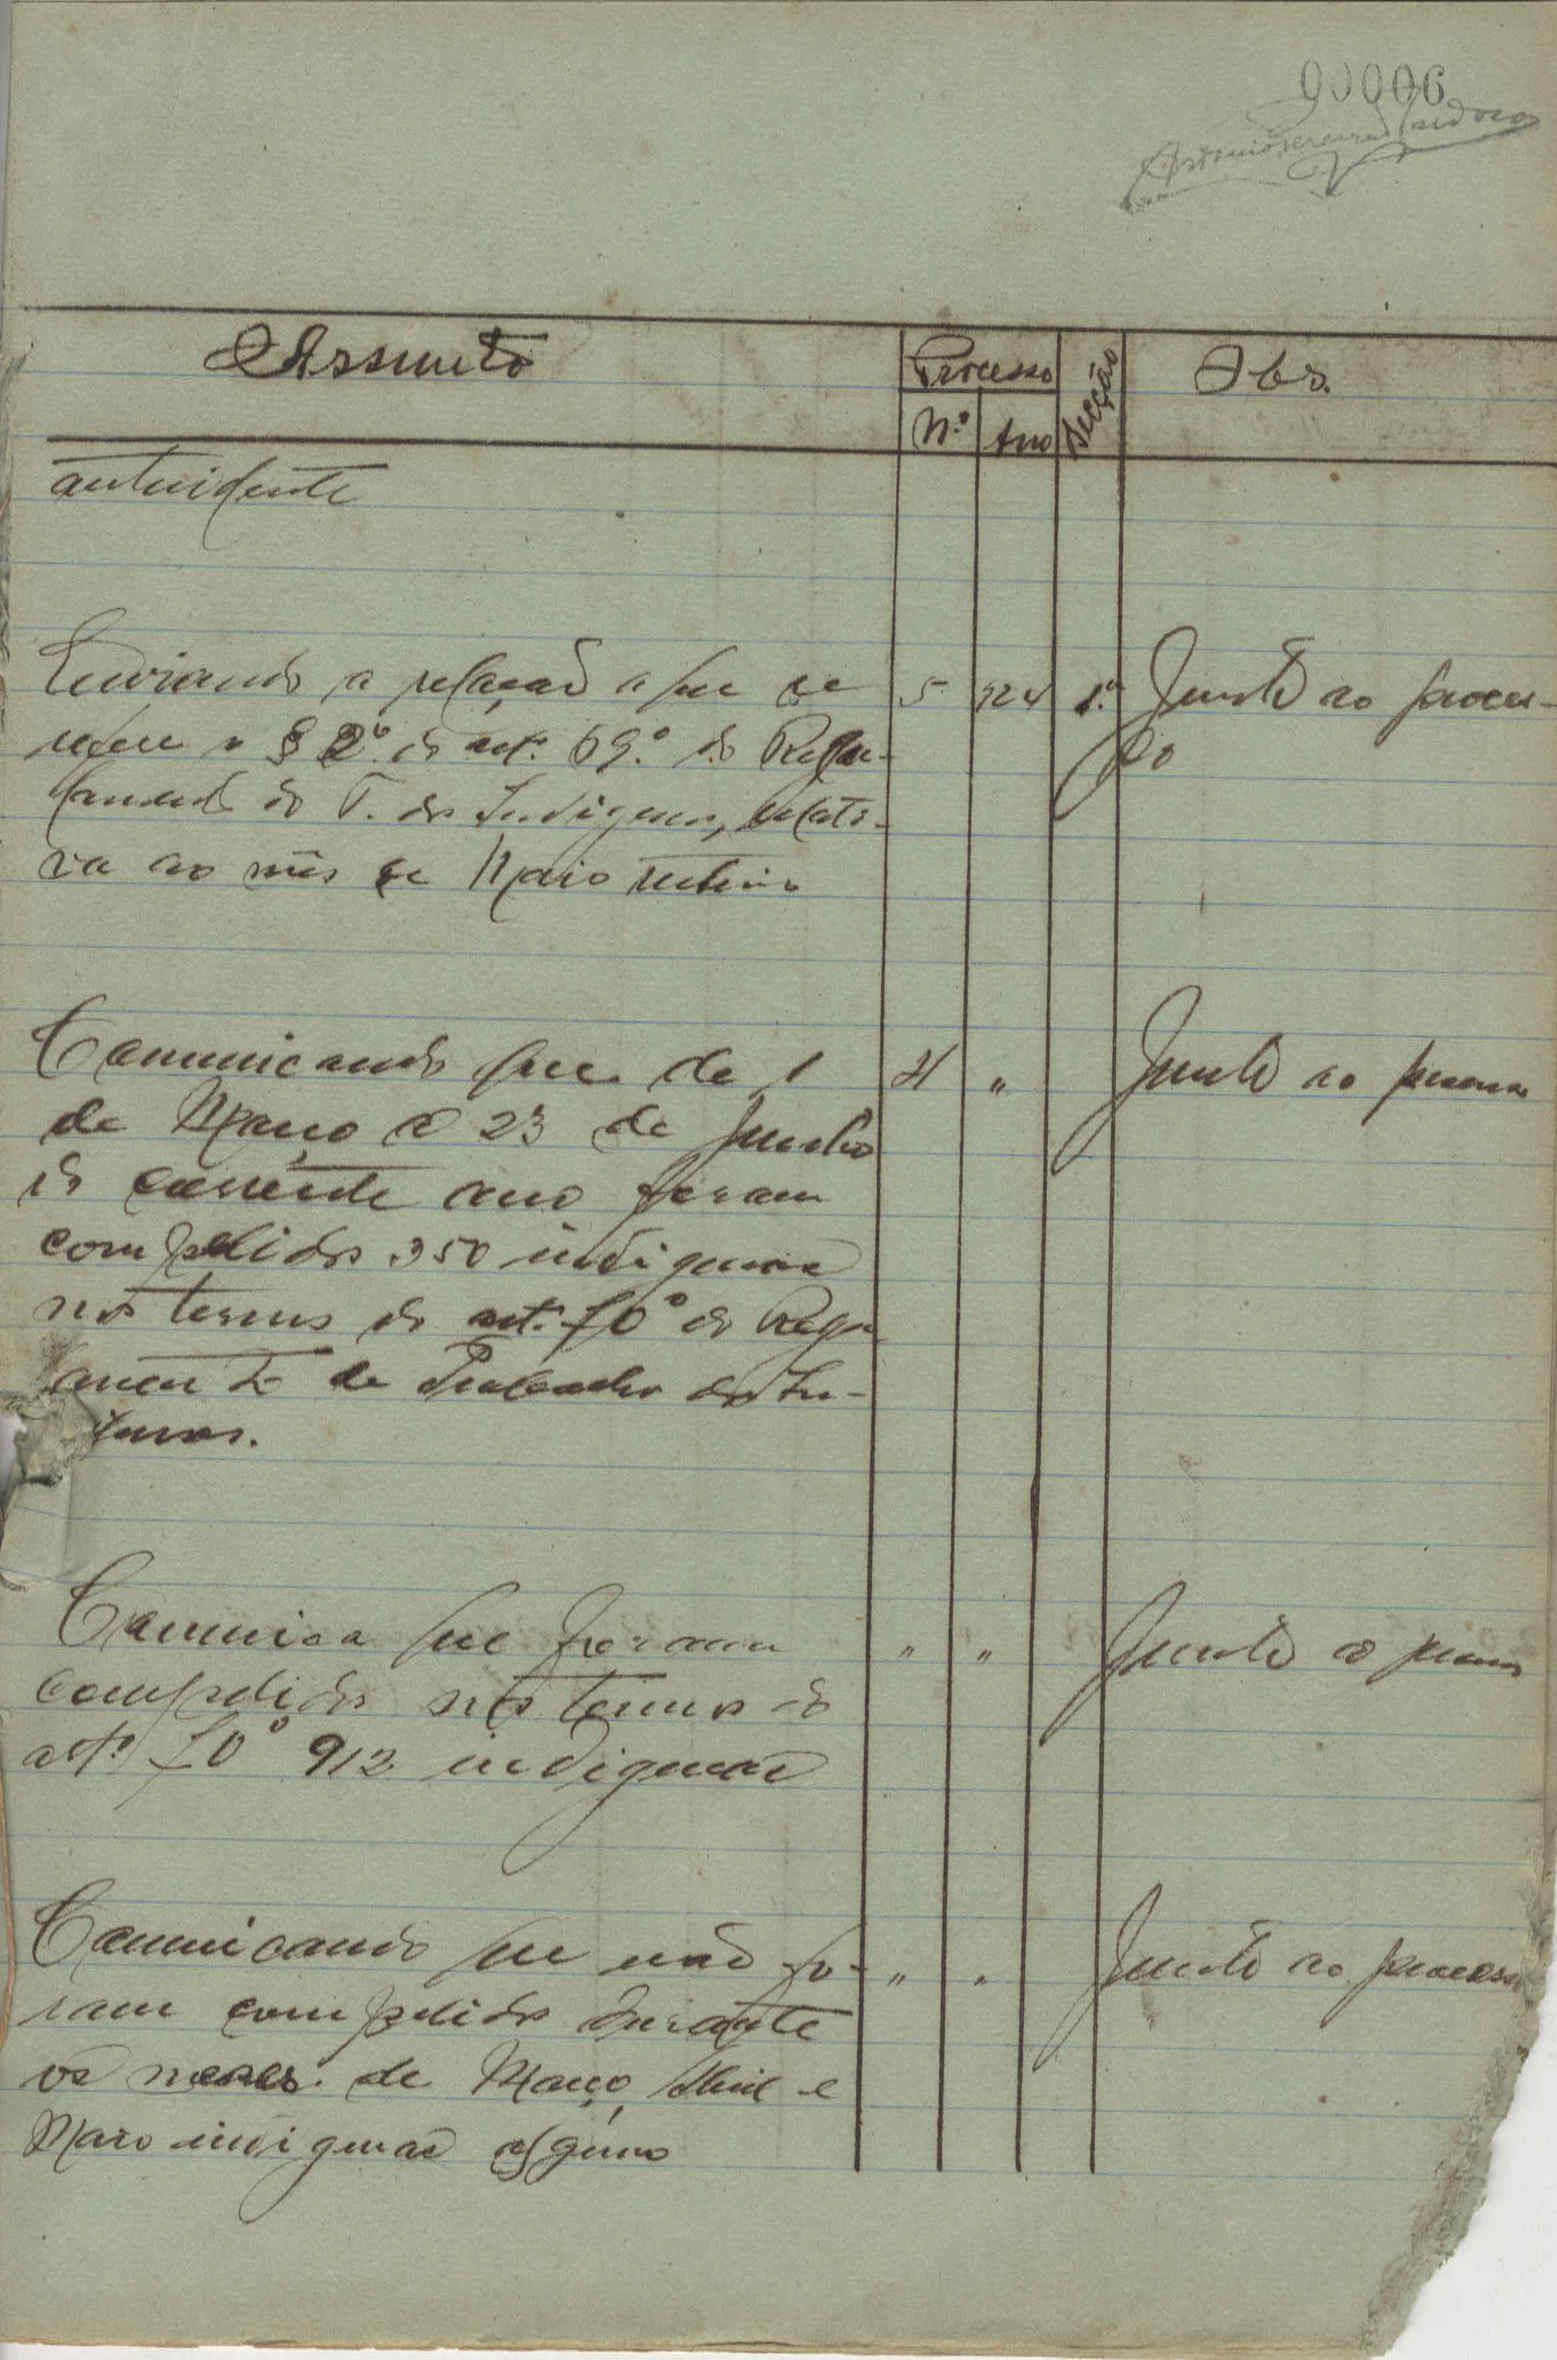 00006
Antonio Pereira Cardoso
Assunto
Processo
Secção
Obs.
N.º
Ano
Enviando a relação a que se
refere o § 2º do art. 69.º do Regu-
lamento do T. dos Indigenas, relati-
va ao mês de Maio ultimo
5
924
1.ª
Junto ao proces-
so
Comunicando que de 1
de Março a 23 de Junho
do corrente ano foram
compelidos 350 indigenas
nos termos do art. 70º do Regu
lamento de Trabalho dos In-
genas.
21
"
Junto ao processo
Comunica que foram
compelidos nos termos do
artº 70º 912 indigenas
"
"
Junto ao processo
Comunicando que não fo-
ram compelidos durante
os meses de Março, Abril e
Maio indigenas alguns
"
"
Junto ao processo